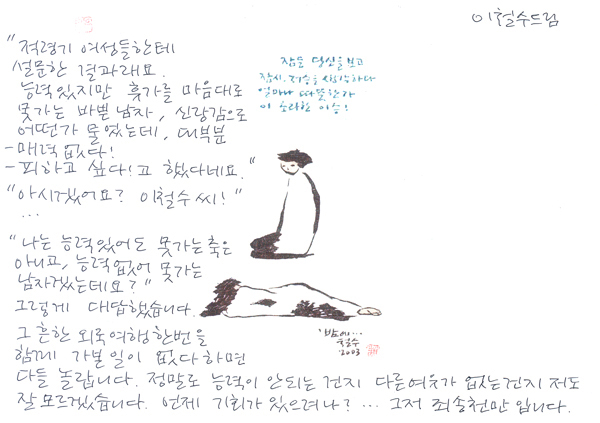 이철수드림
"적령기 여성들한테
설문한 결과래요.
능력있지만 휴가를 마음대로
못가는 바쁜 남자, 신랑감으로
어떤가 물었는데, 대부분
-매력 없다!
-피하고 싶다!고 했다네요."
"아시겠어요? 이철수 씨!"
...
"나는 능력있어도 못가는 축은
아니고, 능력없어 못가는
남자겠는데요?"
그렇게 대답했습니다.
그 흔한 외국여행 한번을
함께 가본 일이 없다 하면
다들 놀랍니다. 정말로 능력이 안되는 건지 다른 여유가 없는건지 저도
잘 모르겠습니다. 언제 기회가 있으려나? ... 그저 죄송천만입니다.
잠든 당신을 보고
잠시, 저승을 생각하다
얼마나 따뜻한가
이 소란한 이승!
'밤에...
철수
2003